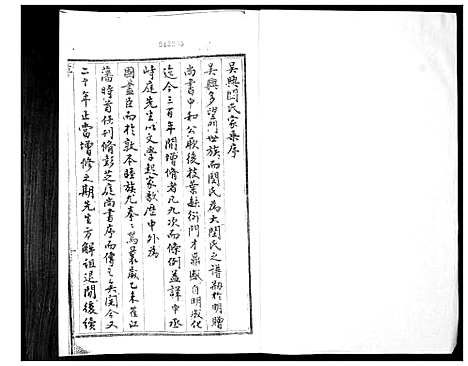 吳興閔氏家乘序
吳興多望門世族而閔氏為大閔氏之譜刱於明贈
尚書中和公厥後枝葉緜衍門才鼎盛自明成化
迄今三百年間增修者凡九次而條例益詳中丞
峙庭先生以文學起家敭歷中外為
國藎臣而於敦本睦族尤拳拳焉曩歲乙未在江
藩時首任刊脩彭芝庭尚書序而傳之矣閱今又
二十年正當增修之期先生方解組退閒後續